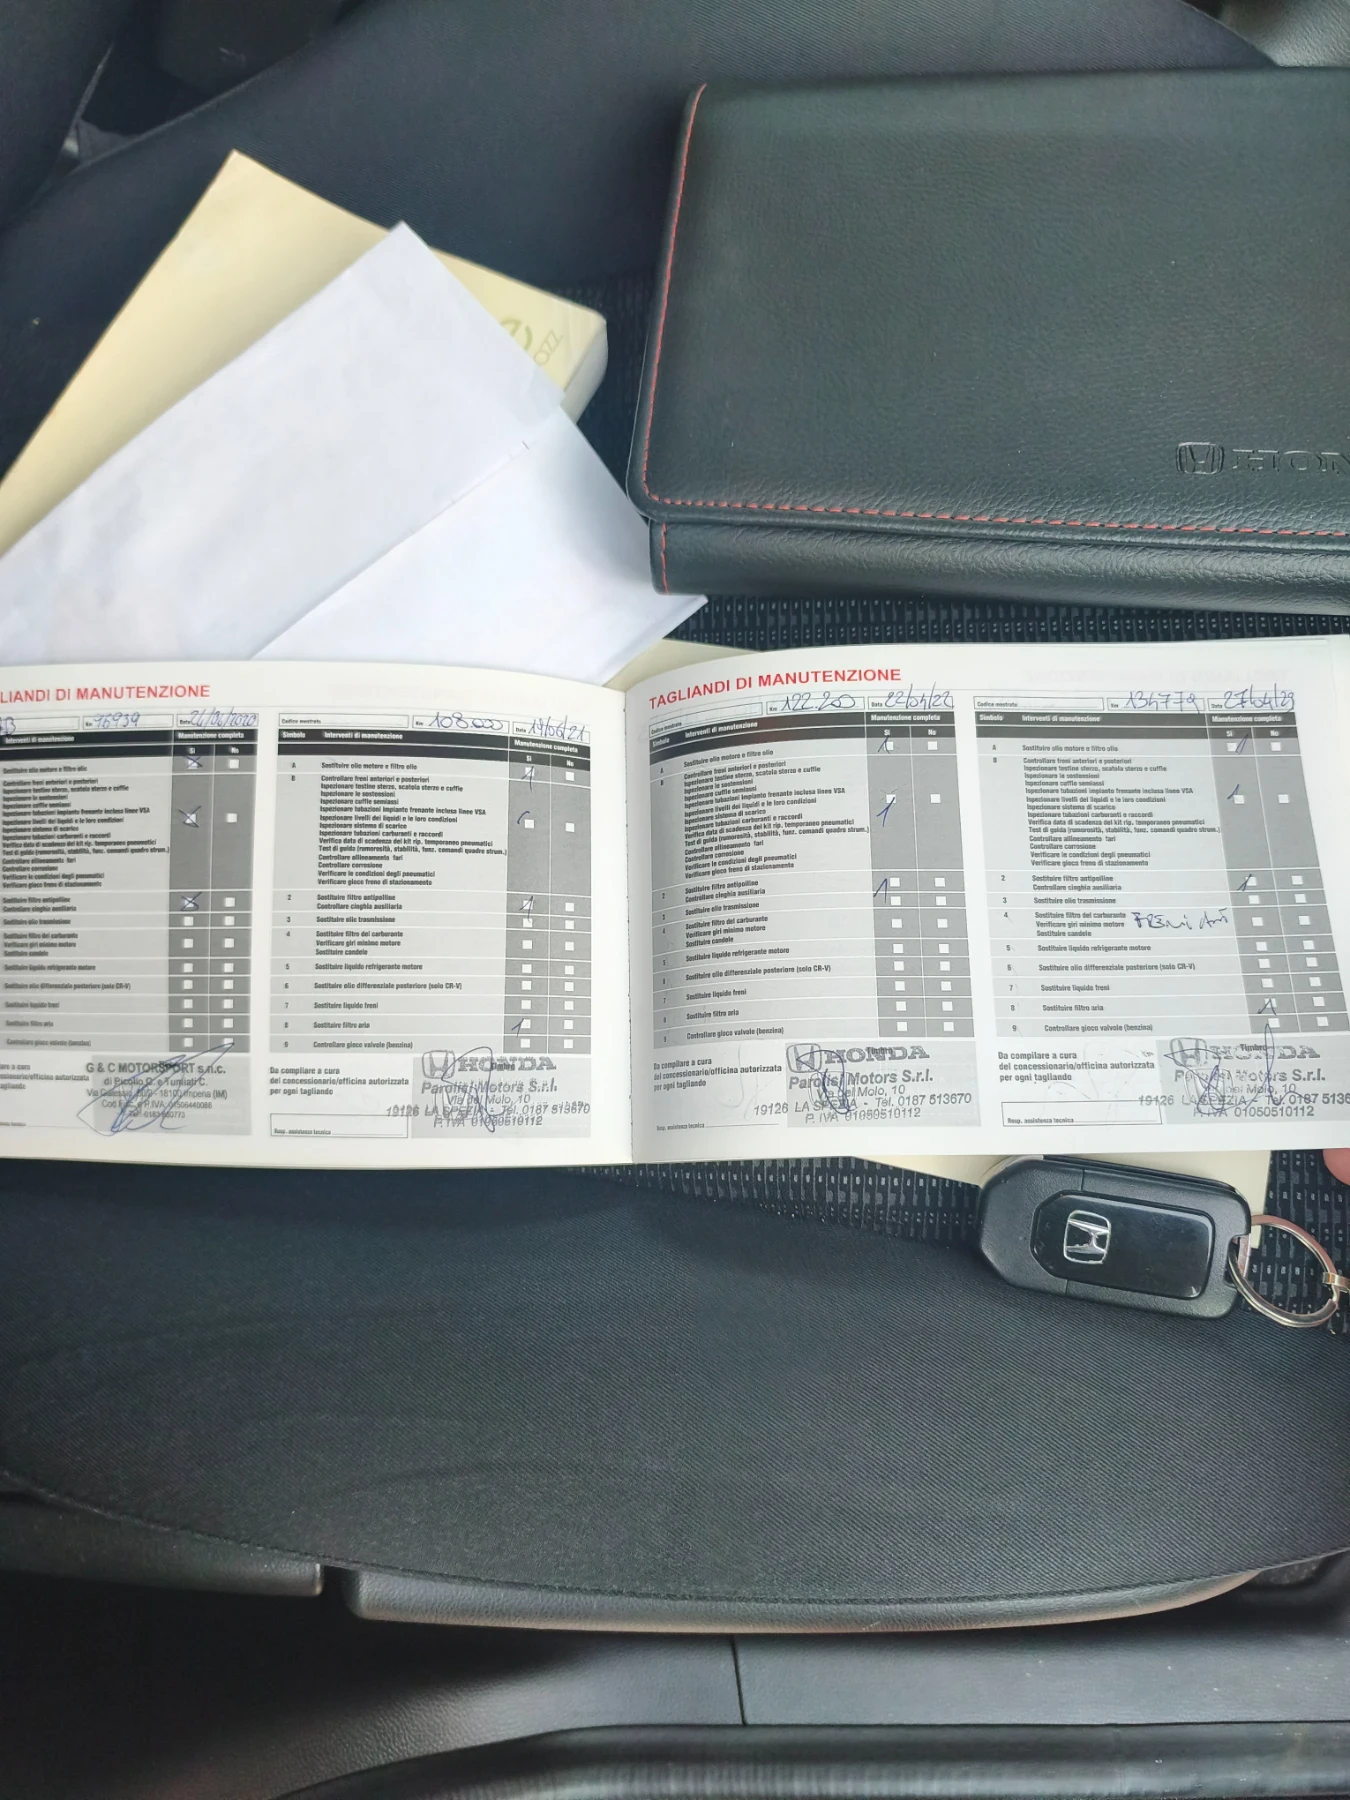 HON
LIANDI DI MANUTENZIONE
Km 96939 Data 24/06/2020
Interventi di manutenzione Manutenzione completa
Sì No
Sostituire olio motore e filtro olio
Controllare freni anteriori e posteriori
Ispezionare testine sterzo, scatola sterzo e cuffie
Ispezionare le sospensioni
Ispezionare cuffie semiassi
Ispezionare tubazioni impianto frenante incluse linee VSA
Ispezionare livelli dei liquidi e le loro condizioni
Ispezionare sistema di scarico
Ispezionare tubazioni carburanti e raccordi
Verifica data di scadenza del kit rip. temporaneo pneumatici
Test di guida (rumorosità, stabilità, funz. comandi quadro strum.)
Controllare allineamento fari
Controllare corrosione
Verificare le condizioni degli pneumatici
Verificare gioco freno di stazionamento
Sostituire filtro antipolline
Controllare cinghia ausiliaria
Sostituire olio trasmissione
Sostituire filtro del carburante
Verificare giri minimo motore
Sostituire candele
Sostituire liquido refrigerante motore
Sostituire olio differenziale posteriore (solo CR-V)
Sostituire liquido freni
Sostituire filtro aria
Controllare gioco valvole (benzina)
G & C MOTORSPORT s.n.c.
Codice mostrato Km 108.000 Data 19/06/21
Simbolo Interventi di manutenzione Manutenzione completa
Sì No
A Sostituire olio motore e filtro olio
B Controllare freni anteriori e posteriori
Ispezionare testine sterzo, scatola sterzo e cuffie
Ispezionare le sospensioni
Ispezionare cuffie semiassi
Ispezionare tubazioni impianto frenante incluse linee VSA
Ispezionare livelli dei liquidi e le loro condizioni
Ispezionare sistema di scarico
Ispezionare tubazioni carburanti e raccordi
Verifica data di scadenza del kit rip. temporaneo pneumatici
Test di guida (rumorosità, stabilità, funz. comandi quadro strum.)
Controllare allineamento fari
Controllare corrosione
Verificare le condizioni degli pneumatici
Verificare gioco freno di stazionamento
2 Sostituire filtro antipolline
Controllare cinghia ausiliaria
3 Sostituire olio trasmissione
4 Sostituire filtro del carburante
Verificare giri minimo motore
Sostituire candele
5 Sostituire liquido refrigerante motore
6 Sostituire olio differenziale posteriore (solo CR-V)
7 Sostituire liquido freni
8 Sostituire filtro aria
9 Controllare gioco valvole (benzina)
Da compilare a cura
del concessionario/officina autorizzata
per ogni tagliando
Resp. assistenza tecnica
Timbro
HONDA
Parolisi Motors S.r.l.
Via del Molo, 10
19126 LA SPEZIA - Tel. 0187 513670
P. IVA 01050510112
TAGLIANDI DI MANUTENZIONE
Codice mostrato Km 122.200 Data 22/04/22
Simbolo Interventi di manutenzione Manutenzione completa
Sì No
A Sostituire olio motore e filtro olio
B Controllare freni anteriori e posteriori
Ispezionare testine sterzo, scatola sterzo e cuffie
Ispezionare le sospensioni
Ispezionare cuffie semiassi
Ispezionare tubazioni impianto frenante incluse linee VSA
Ispezionare livelli dei liquidi e le loro condizioni
Ispezionare sistema di scarico
Ispezionare tubazioni carburanti e raccordi
Verifica data di scadenza del kit rip. temporaneo pneumatici
Test di guida (rumorosità, stabilità, funz. comandi quadro strum.)
Controllare allineamento fari
Controllare corrosione
Verificare le condizioni degli pneumatici
Verificare gioco freno di stazionamento
2 Sostituire filtro antipolline
Controllare cinghia ausiliaria
3 Sostituire olio trasmissione
4 Sostituire filtro del carburante
Verificare giri minimo motore
Sostituire candele
5 Sostituire liquido refrigerante motore
6 Sostituire olio differenziale posteriore (solo CR-V)
7 Sostituire liquido freni
8 Sostituire filtro aria
9 Controllare gioco valvole (benzina)
Da compilare a cura
del concessionario/officina autorizzata
per ogni tagliando
Resp. assistenza tecnica
Timbro
HONDA
Parolisi Motors S.r.l.
Via del Molo, 10
19126 LA SPEZIA - Tel. 0187 513670
P. IVA 01050510112
Codice mostrato Km 134779 Data 27/04/23
Simbolo Interventi di manutenzione Manutenzione completa
Sì No
A Sostituire olio motore e filtro olio
B Controllare freni anteriori e posteriori
Ispezionare testine sterzo, scatola sterzo e cuffie
Ispezionare le sospensioni
Ispezionare cuffie semiassi
Ispezionare tubazioni impianto frenante incluse linee VSA
Ispezionare livelli dei liquidi e le loro condizioni
Ispezionare sistema di scarico
Ispezionare tubazioni carburanti e raccordi
Verifica data di scadenza del kit rip. temporaneo pneumatici
Test di guida (rumorosità, stabilità, funz. comandi quadro strum.)
Controllare allineamento fari
Controllare corrosione
Verificare le condizioni degli pneumatici
Verificare gioco freno di stazionamento
2 Sostituire filtro antipolline
Controllare cinghia ausiliaria
3 Sostituire olio trasmissione
4 Sostituire filtro del carburante
Verificare giri minimo motore
Sostituire candele
5 Sostituire liquido refrigerante motore
6 Sostituire olio differenziale posteriore (solo CR-V)
7 Sostituire liquido freni
8 Sostituire filtro aria
9 Controllare gioco valvole (benzina)
Da compilare a cura
del concessionario/officina autorizzata
per ogni tagliando
Resp. assistenza tecnica
Timbro
HONDA
Motors S.r.l.
del Molo, 10
19126 LA SPEZIA - Tel. 0187 5136
P. IVA 01050510112